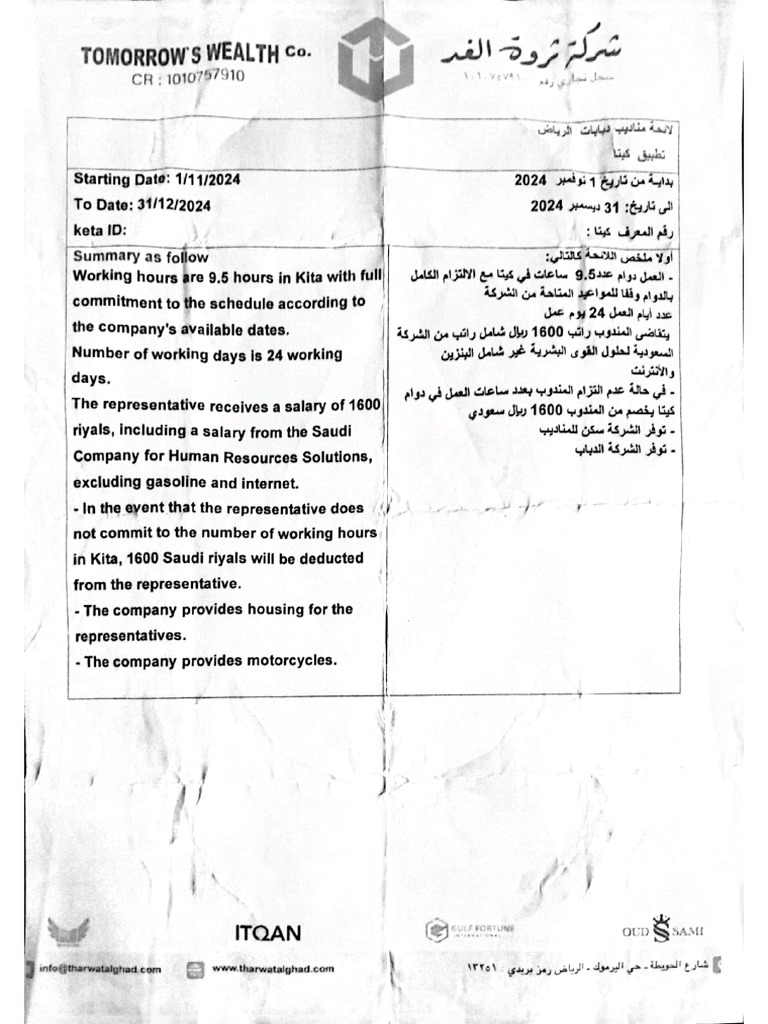 TOMORROW'S WEALTH Co.
CR : 1010757910
شركة ثروة الغد
سجل تجاري رقم ١٠١٠٧٥٧٩١٠
لائحة مناديب دبابات الرياض
تطبيق كيتا
Starting Date: 1/11/2024
To Date: 31/12/2024
keta ID:
بداية من تاريخ 1 نوفمبر 2024
الى تاريخ: 31 ديسمبر 2024
رقم المعرف كيتا :
Summary as follow
Working hours are 9.5 hours in Kita with full
commitment to the schedule according to
the company's available dates.
Number of working days is 24 working
days.
The representative receives a salary of 1600
riyals, including a salary from the Saudi
Company for Human Resources Solutions,
excluding gasoline and internet.
- In the event that the representative does
not commit to the number of working hours
in Kita, 1600 Saudi riyals will be deducted
from the representative.
- The company provides housing for the
representatives.
- The company provides motorcycles.
أولا ملخص اللائحة كالتالي:
- العمل دوام عدد9.5 ساعات في كيتا مع الالتزام الكامل
بالدوام وفقا للمواعيد المتاحة من الشركة
عدد أيام العمل 24 يوم عمل
يتقاضى المندوب راتب 1600 ريال شامل راتب من الشركة
السعودية لحلول القوى البشرية غير شامل البنزين
والأنترنت
- في حالة عدم التزام المندوب بعدد ساعات العمل في دوام
كيتا يخصم من المندوب 1600 ريال سعودي
- توفر الشركة سكن للمناديب
- توفر الشركة الدباب
ITQAN
GULF FORTUNE
INTERNATIONAL
OUD SAMI
info@tharwatalghad.com
www.tharwatalghad.com
شارع الحويطة - حي اليرموك - الرياض رمز بريدي : ١٣٢٥١